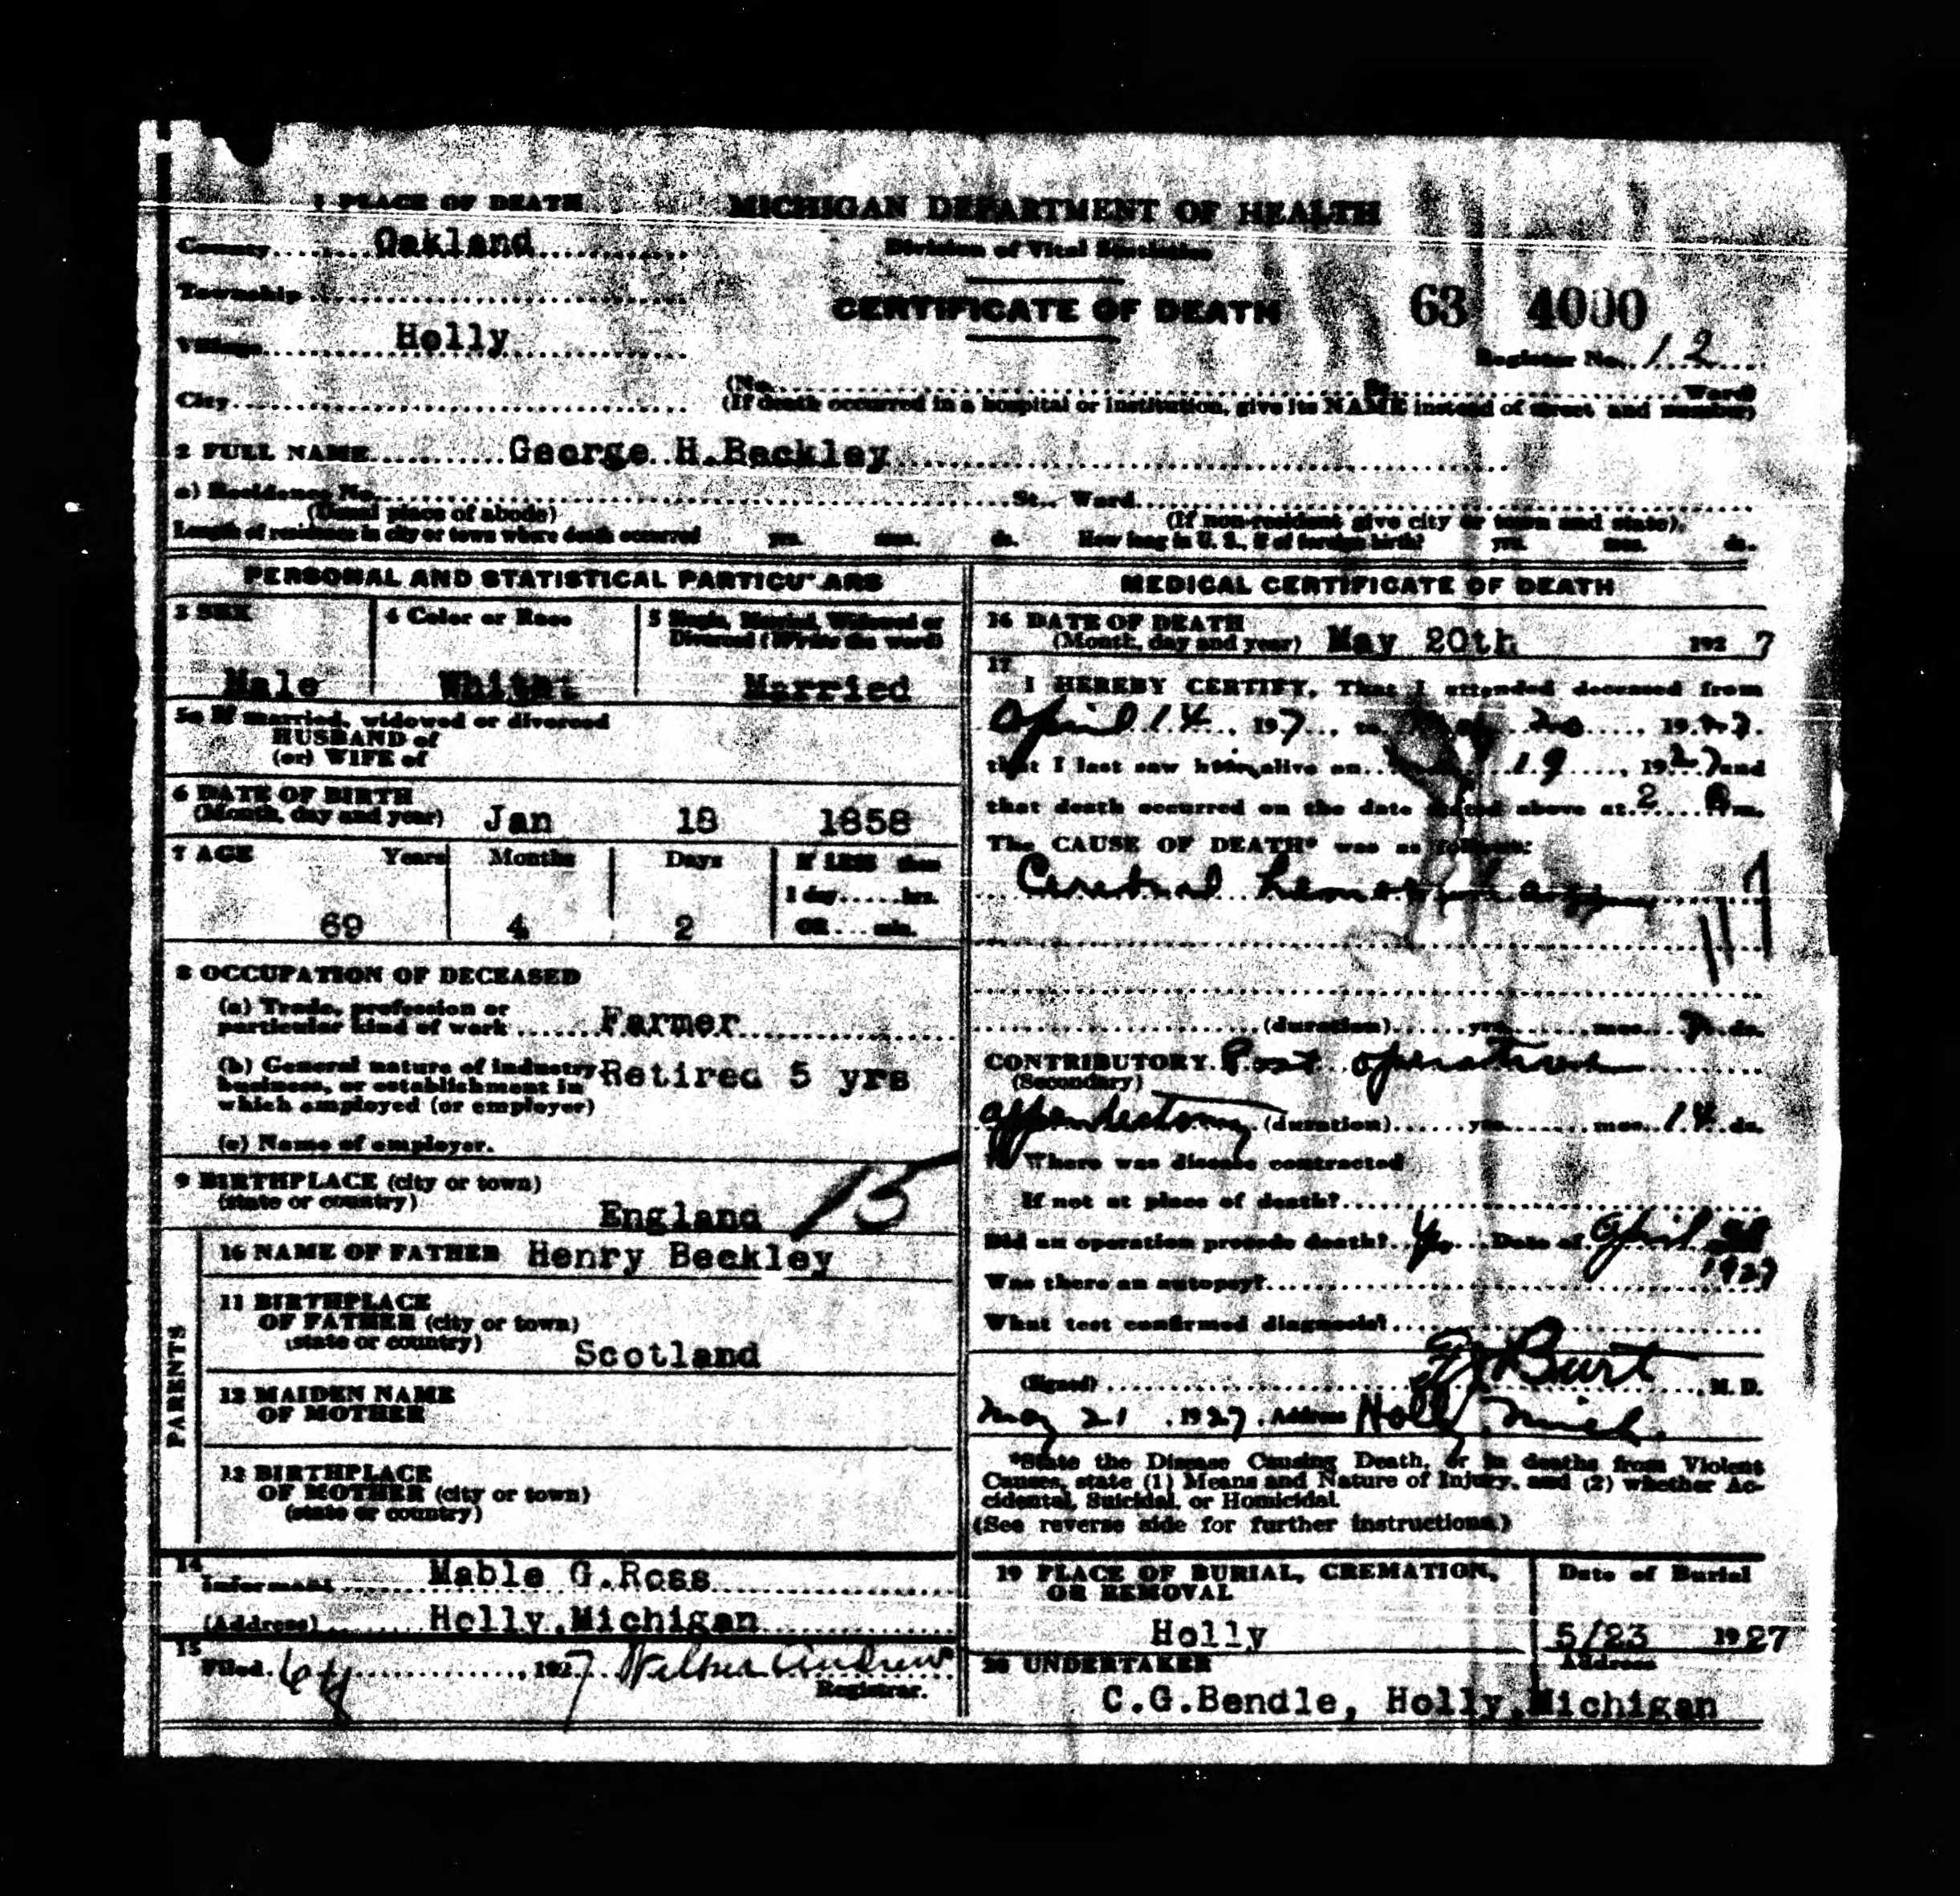 1 PLACE OF DEATH
MICHIGAN DEPARTMENT OF HEALTH
County Oakland
Division of Vital Statistics
Township
CERTIFICATE OF DEATH
63 4000
Village Holly
Register No. 12
City
(No. St. Ward)
(If death occurred in a hospital or institution, give its NAME instead of street and number)
2 FULL NAME George H. Beckley
a) Residence No. St., Ward
(Usual place of abode)
(If non-resident give city or town and state).
Length of residence in city or town where death occurred yrs. mos. ds. How long in U. S., if of foreign birth? yrs. mos. ds.
PERSONAL AND STATISTICAL PARTICULARS
3 SEX
4 Color or Race
5 Single, Married, Widowed or
Divorced (Write the word)
Male
White
Married
5a If married, widowed or divorced
HUSBAND of
(or) WIFE of
6 DATE OF BIRTH
(Month, day and year) Jan 18 1858
7 AGE Years Months Days If LESS than
1 day hrs.
69 4 2 OR min.
8 OCCUPATION OF DECEASED
(a) Trade, profession or
particular kind of work Farmer
(b) General nature of industry, Retired 5 yrs
business, or establishment in
which employed (or employer)
(c) Name of employer.
9 BIRTHPLACE (city or town)
(state or country) England 13
PARENTS
10 NAME OF FATHER Henry Beckley
11 BIRTHPLACE
OF FATHER (city or town)
(state or country) Scotland
12 MAIDEN NAME
OF MOTHER
13 BIRTHPLACE
OF MOTHER (city or town)
(state or country)
14
Informant Mable G.Ross
(Address) Holly,Michigan
15
Filed 1927
Registrar.
MEDICAL CERTIFICATE OF DEATH
16 DATE OF DEATH
(Month, day and year) May 20th 1927
17
I HEREBY CERTIFY, That I attended deceased from
April 14, 197, to May 20, 1927.
that I last saw him alive on 19, 1927 and
that death occurred on the date stated above at 2 m.
The CAUSE OF DEATH* was as follows:
Cerebral hemorrhage
(duration) yrs. mos. ds.
CONTRIBUTORY Post operative
(Secondary)
appendectomy (duration) yrs. mos. 14 ds.
18 Where was disease contracted
If not at place of death?
Did an operation precede death? Yes Date of April
1927
Was there an autopsy?
What test confirmed diagnosis?
(Signed) Burt M. D.
May 21, 1927, Address Holly, Mich.
*State the Disease Causing Death, or in deaths from Violent
Causes, state (1) Means and Nature of Injury, and (2) whether Ac-
cidental, Suicidal, or Homicidal.
(See reverse side for further instructions.)
19 PLACE OF BURIAL, CREMATION,
OR REMOVAL
Date of Burial
Holly
5/23 1927
20 UNDERTAKER
Address
C.G.Bendle, Holly,Michigan